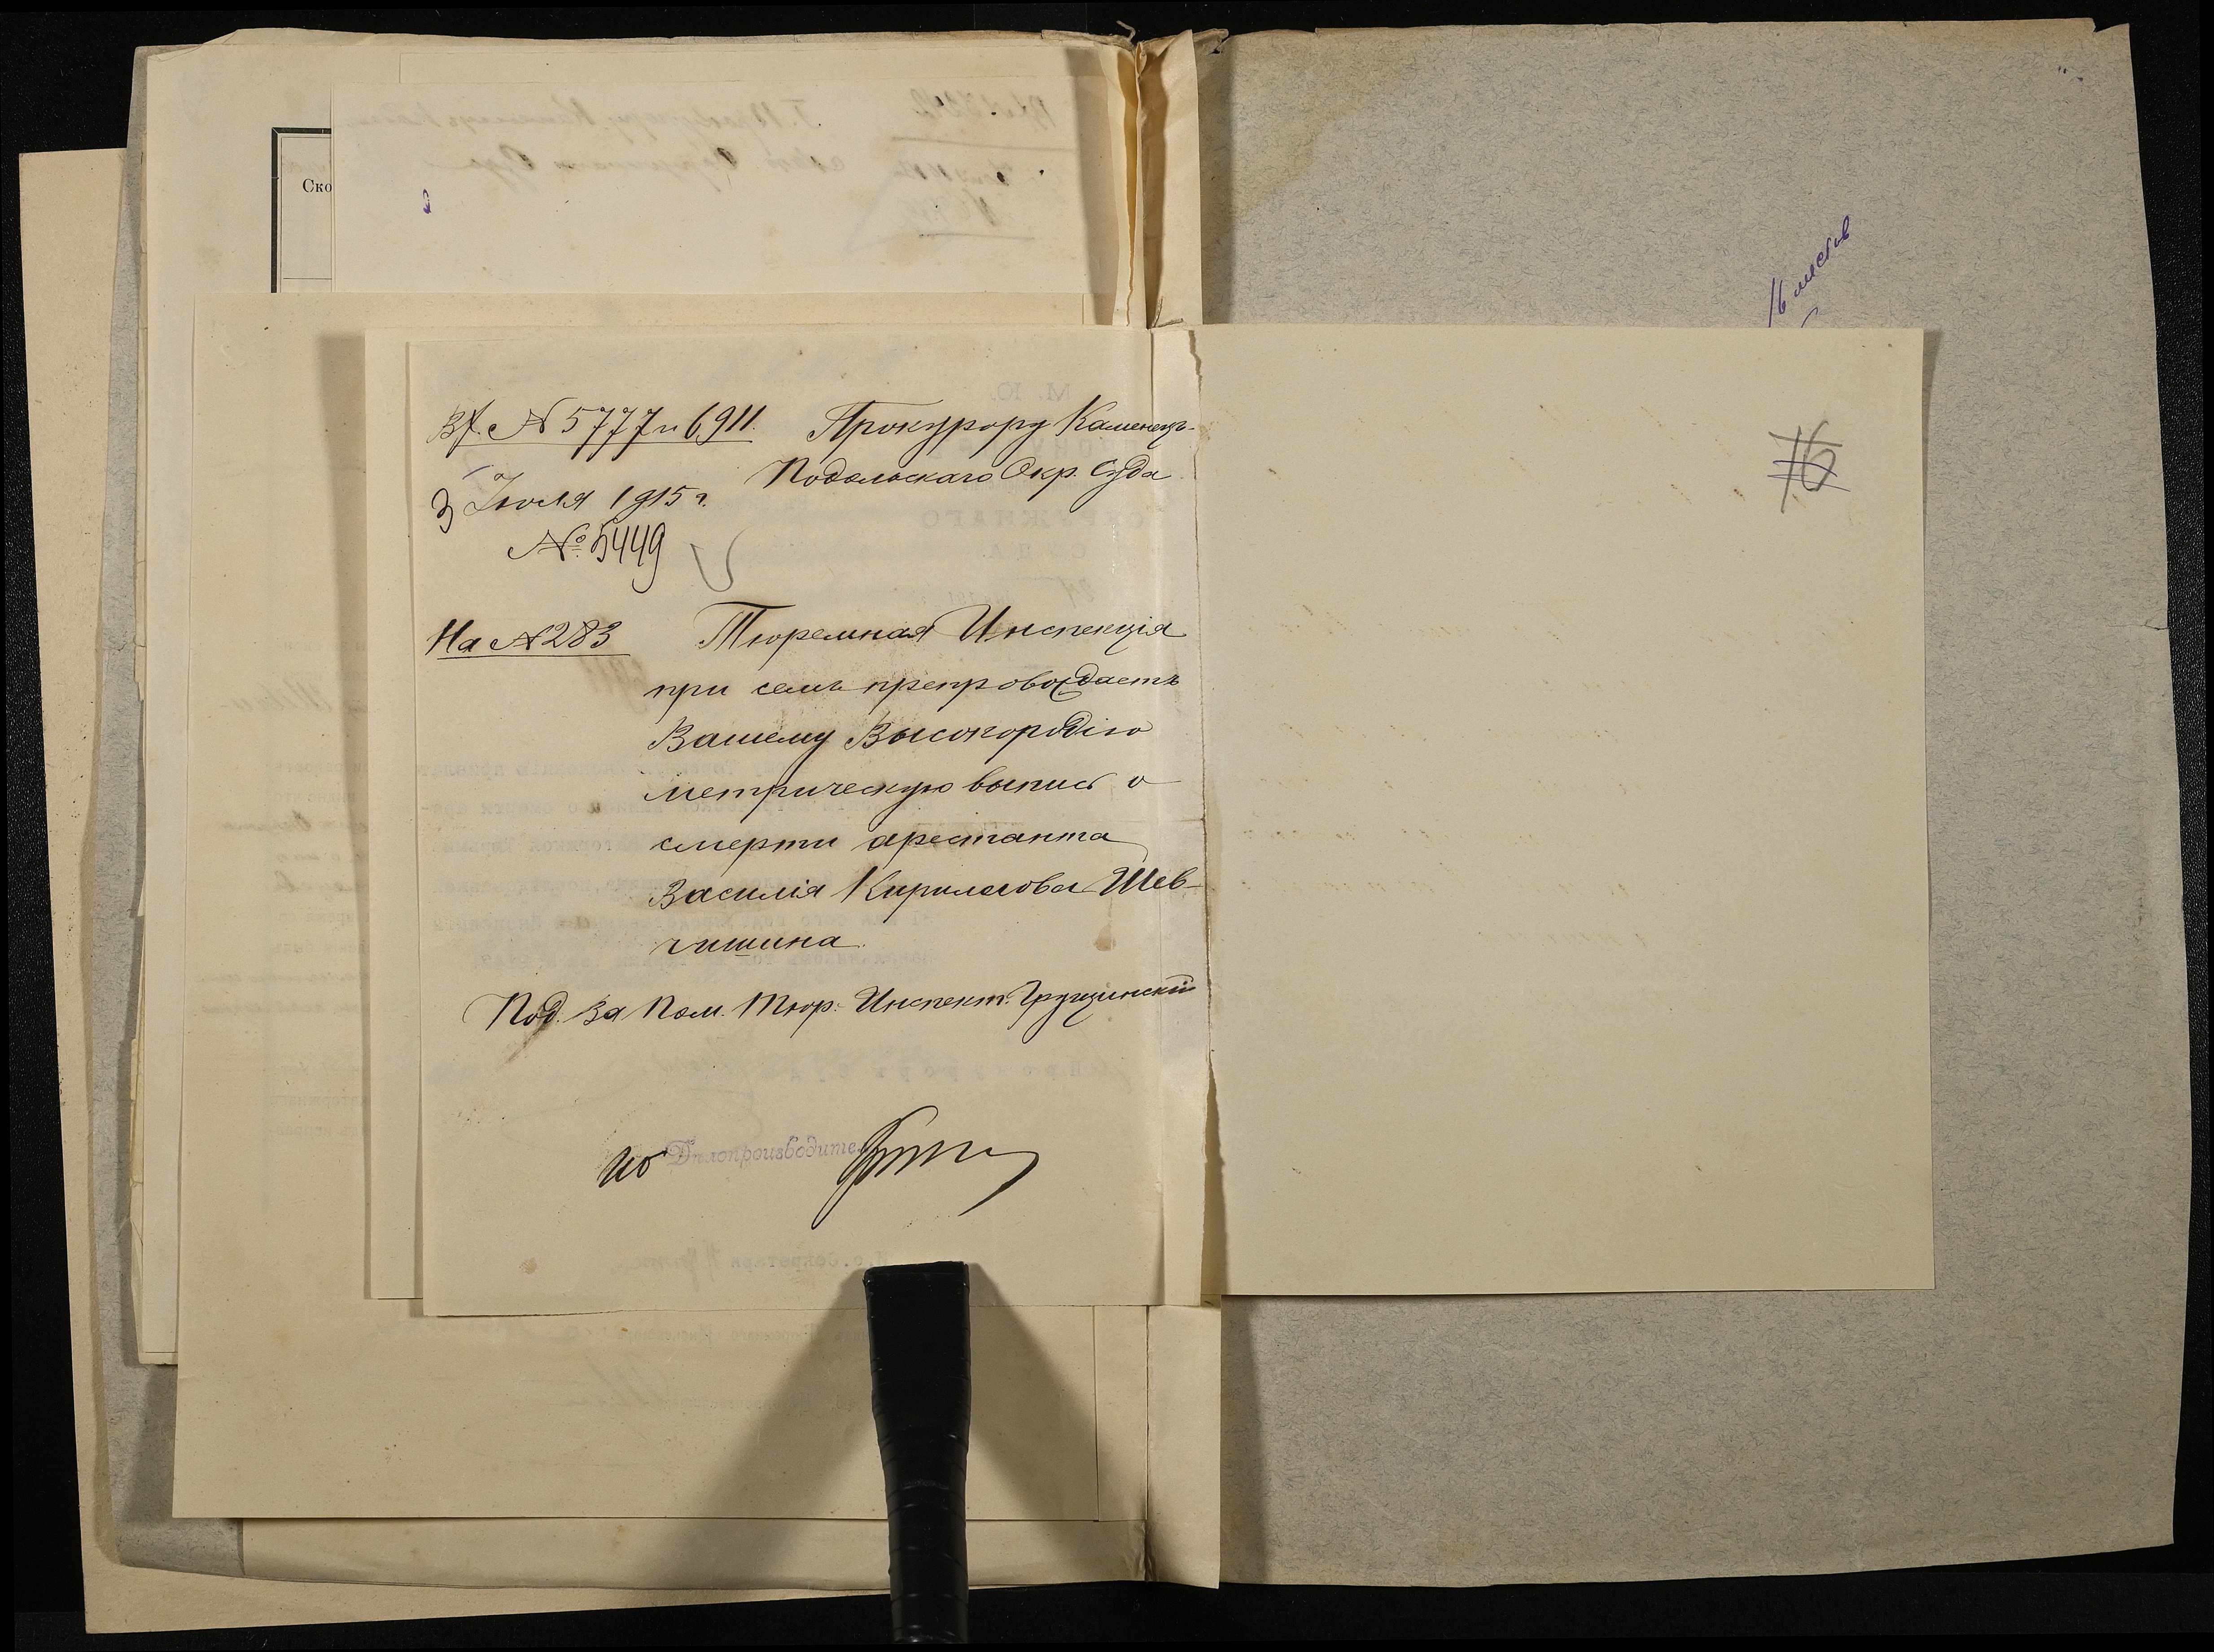 Ско
16 листов
16
Вх. № 5777 и 6911.
Прокурору Каменецъ-
Подольскаго Окр. Суда
3 Іюля 1915 г.
№ 5449
На № 283
Тюремная Инспекція
при семъ препровождаетъ
Вашему Высокородію
метрическую выпись о
смерти арестанта
Василія Кирилова Шев-
чишина.
Под. За Пом. Тюр. Инспект. Грудзинскій
ио Дѣлопроизводитель